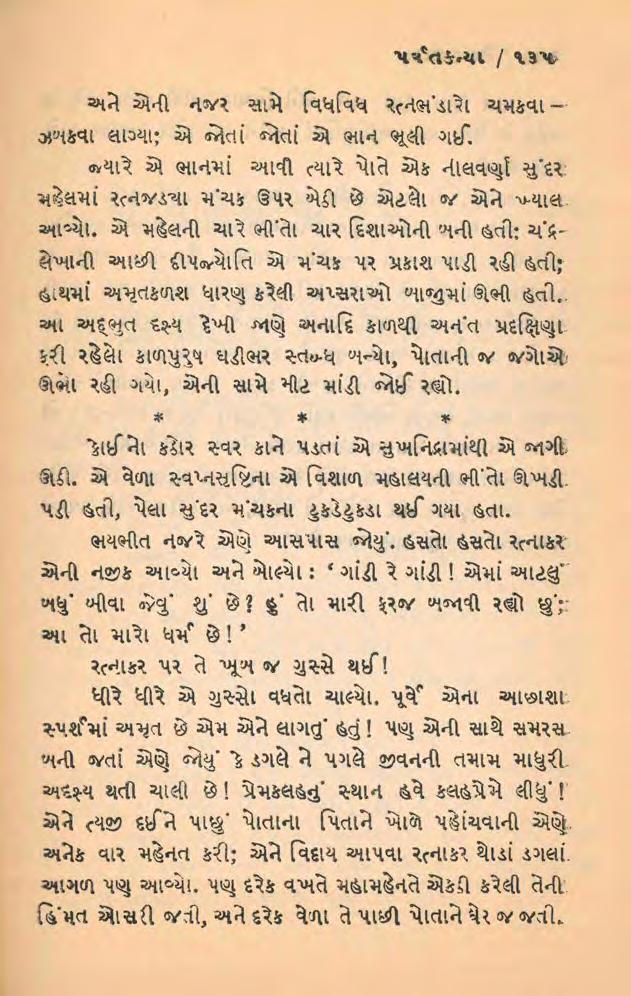 પર્વતકન્યા / ૧૩૫
અને એની નજર સામે વિધવિધ રત્નભંડારો ચમકવા –
ઝબકવા લાગ્યા; એ જોતાં જોતાં એ ભાન ભૂલી ગઈ.
જ્યારે એ ભાનમાં આવી ત્યારે પોતે એક નીલવર્ણા સુંદર
મહેલમાં રત્નજડ્યા મંચક ઉપર બેઠી છે એટલો જ એને ખ્યાલ
આવ્યો. એ મહેલની ચારે ભીંતો ચાર દિશાઓની બની હતી; ચંદ્ર-
લેખાની આછી દીપજ્યોતિ એ મંચક પર પ્રકાશ પાડી રહી હતી;
હાથમાં અમૃતકળશ ધારણ કરેલી અપ્સરાઓ બાજુમાં ઊભી હતી.
આ અદ્ભુત દૃશ્ય દેખી જાણે અનાદિ કાળથી અનંત પ્રદક્ષિણા
કરી રહેલો કાળપુરુષ ઘડીભર સ્તબ્ધ બન્યો, પોતાની જ જગોએ
ઊભો રહી ગયો, એની સામે મીટ માંડી જોઈ રહ્યો.
* * *
કોઈનો કઠોર સ્વર કાને પડતાં એ સુખનિદ્રામાંથી એ જાગી
ઊઠી. એ વેળા સ્વપ્નસૃષ્ટિના એ વિશાળ મહાલયની ભીંતો ઊખડી
પડી હતી, પેલા સુંદર મંચકના ટુકડેટુકડા થઈ ગયા હતા.
ભયભીત નજરે એણે આસપાસ જોયું. હસતો હસતો રત્નાકર
એની નજીક આવ્યો અને બોલ્યો : ‘ ગાંડી રે ગાંડી ! એમાં આટલું
બધું બીવા જેવું શું છે? હું તો મારી ફરજ બજાવી રહ્યો છું;
આ તો મારો ધર્મ છે!’
રત્નાકર પર તે ખૂબ જ ગુસ્સે થઈ!
ધીરે ધીરે એ ગુસ્સો વધતો ચાલ્યો. પૂર્વે એના આછાશા
સ્પર્શમાં અમૃત છે એમ એને લાગતું હતું! પણ એની સાથે સમરસ
બની જતાં એણે જોયું કે ડગલે ને પગલે જીવનની તમામ માધુરી
અદૃશ્ય થતી ચાલી છે! પ્રેમકલહનું સ્થાન હવે કલહપ્રેમે લીધું!
એને ત્યજી દઈને પાછું પોતાના પિતાને ખોળે પહોંચવાની એણે
અનેક વાર મહેનત કરી; એને વિદાય આપવા રત્નાકર થોડાં ડગલાં
આગળ પણ આવ્યો. પણ દરેક વખતે મહામહેનતે એકઠી કરેલી તેની
હિંમત ઓસરી જતી, અને દરેક વેળા તે પાછી પોતાને ઘેર જ જતી.